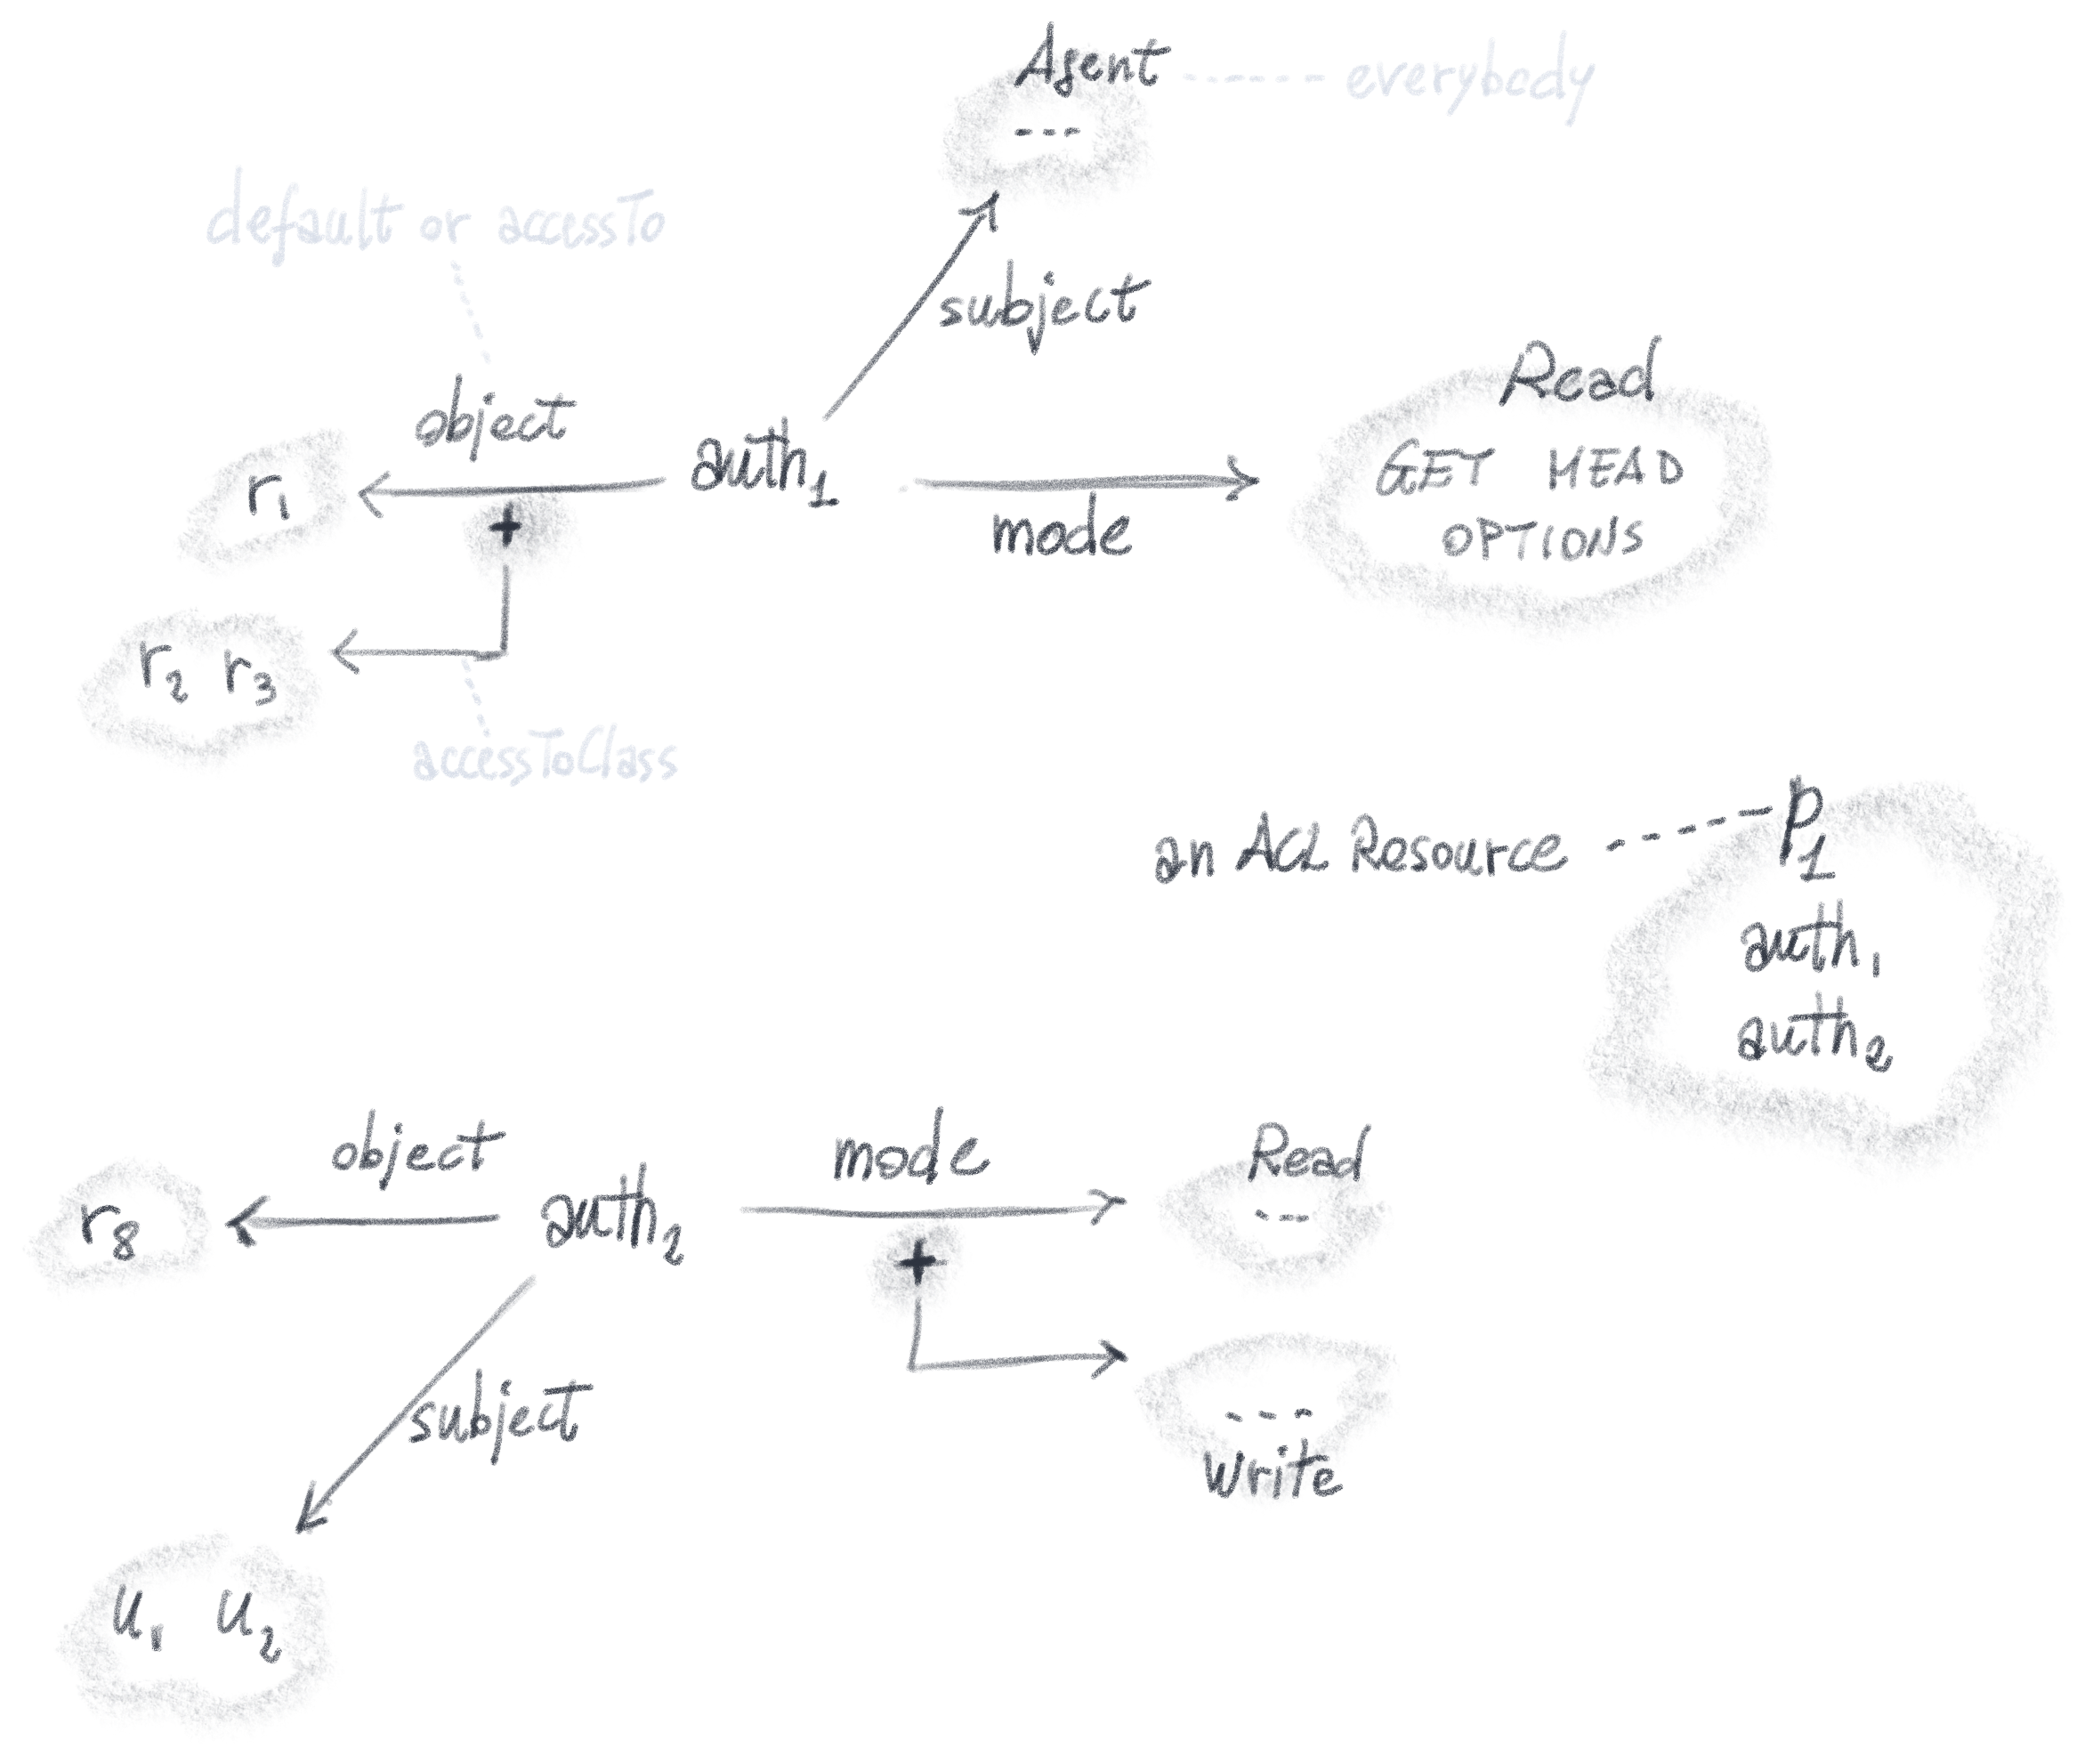 Agent --- everybody
---
default or accessTo
subject
object
Read
r1
auth1
GET HEAD
OPTIONS
+
mode
r2 r3
accessToClass
an ACL Resource --- p1
auth1
auth2
object
mode
Read
r8
auth2
---
+
subject
---
write
u1 u2